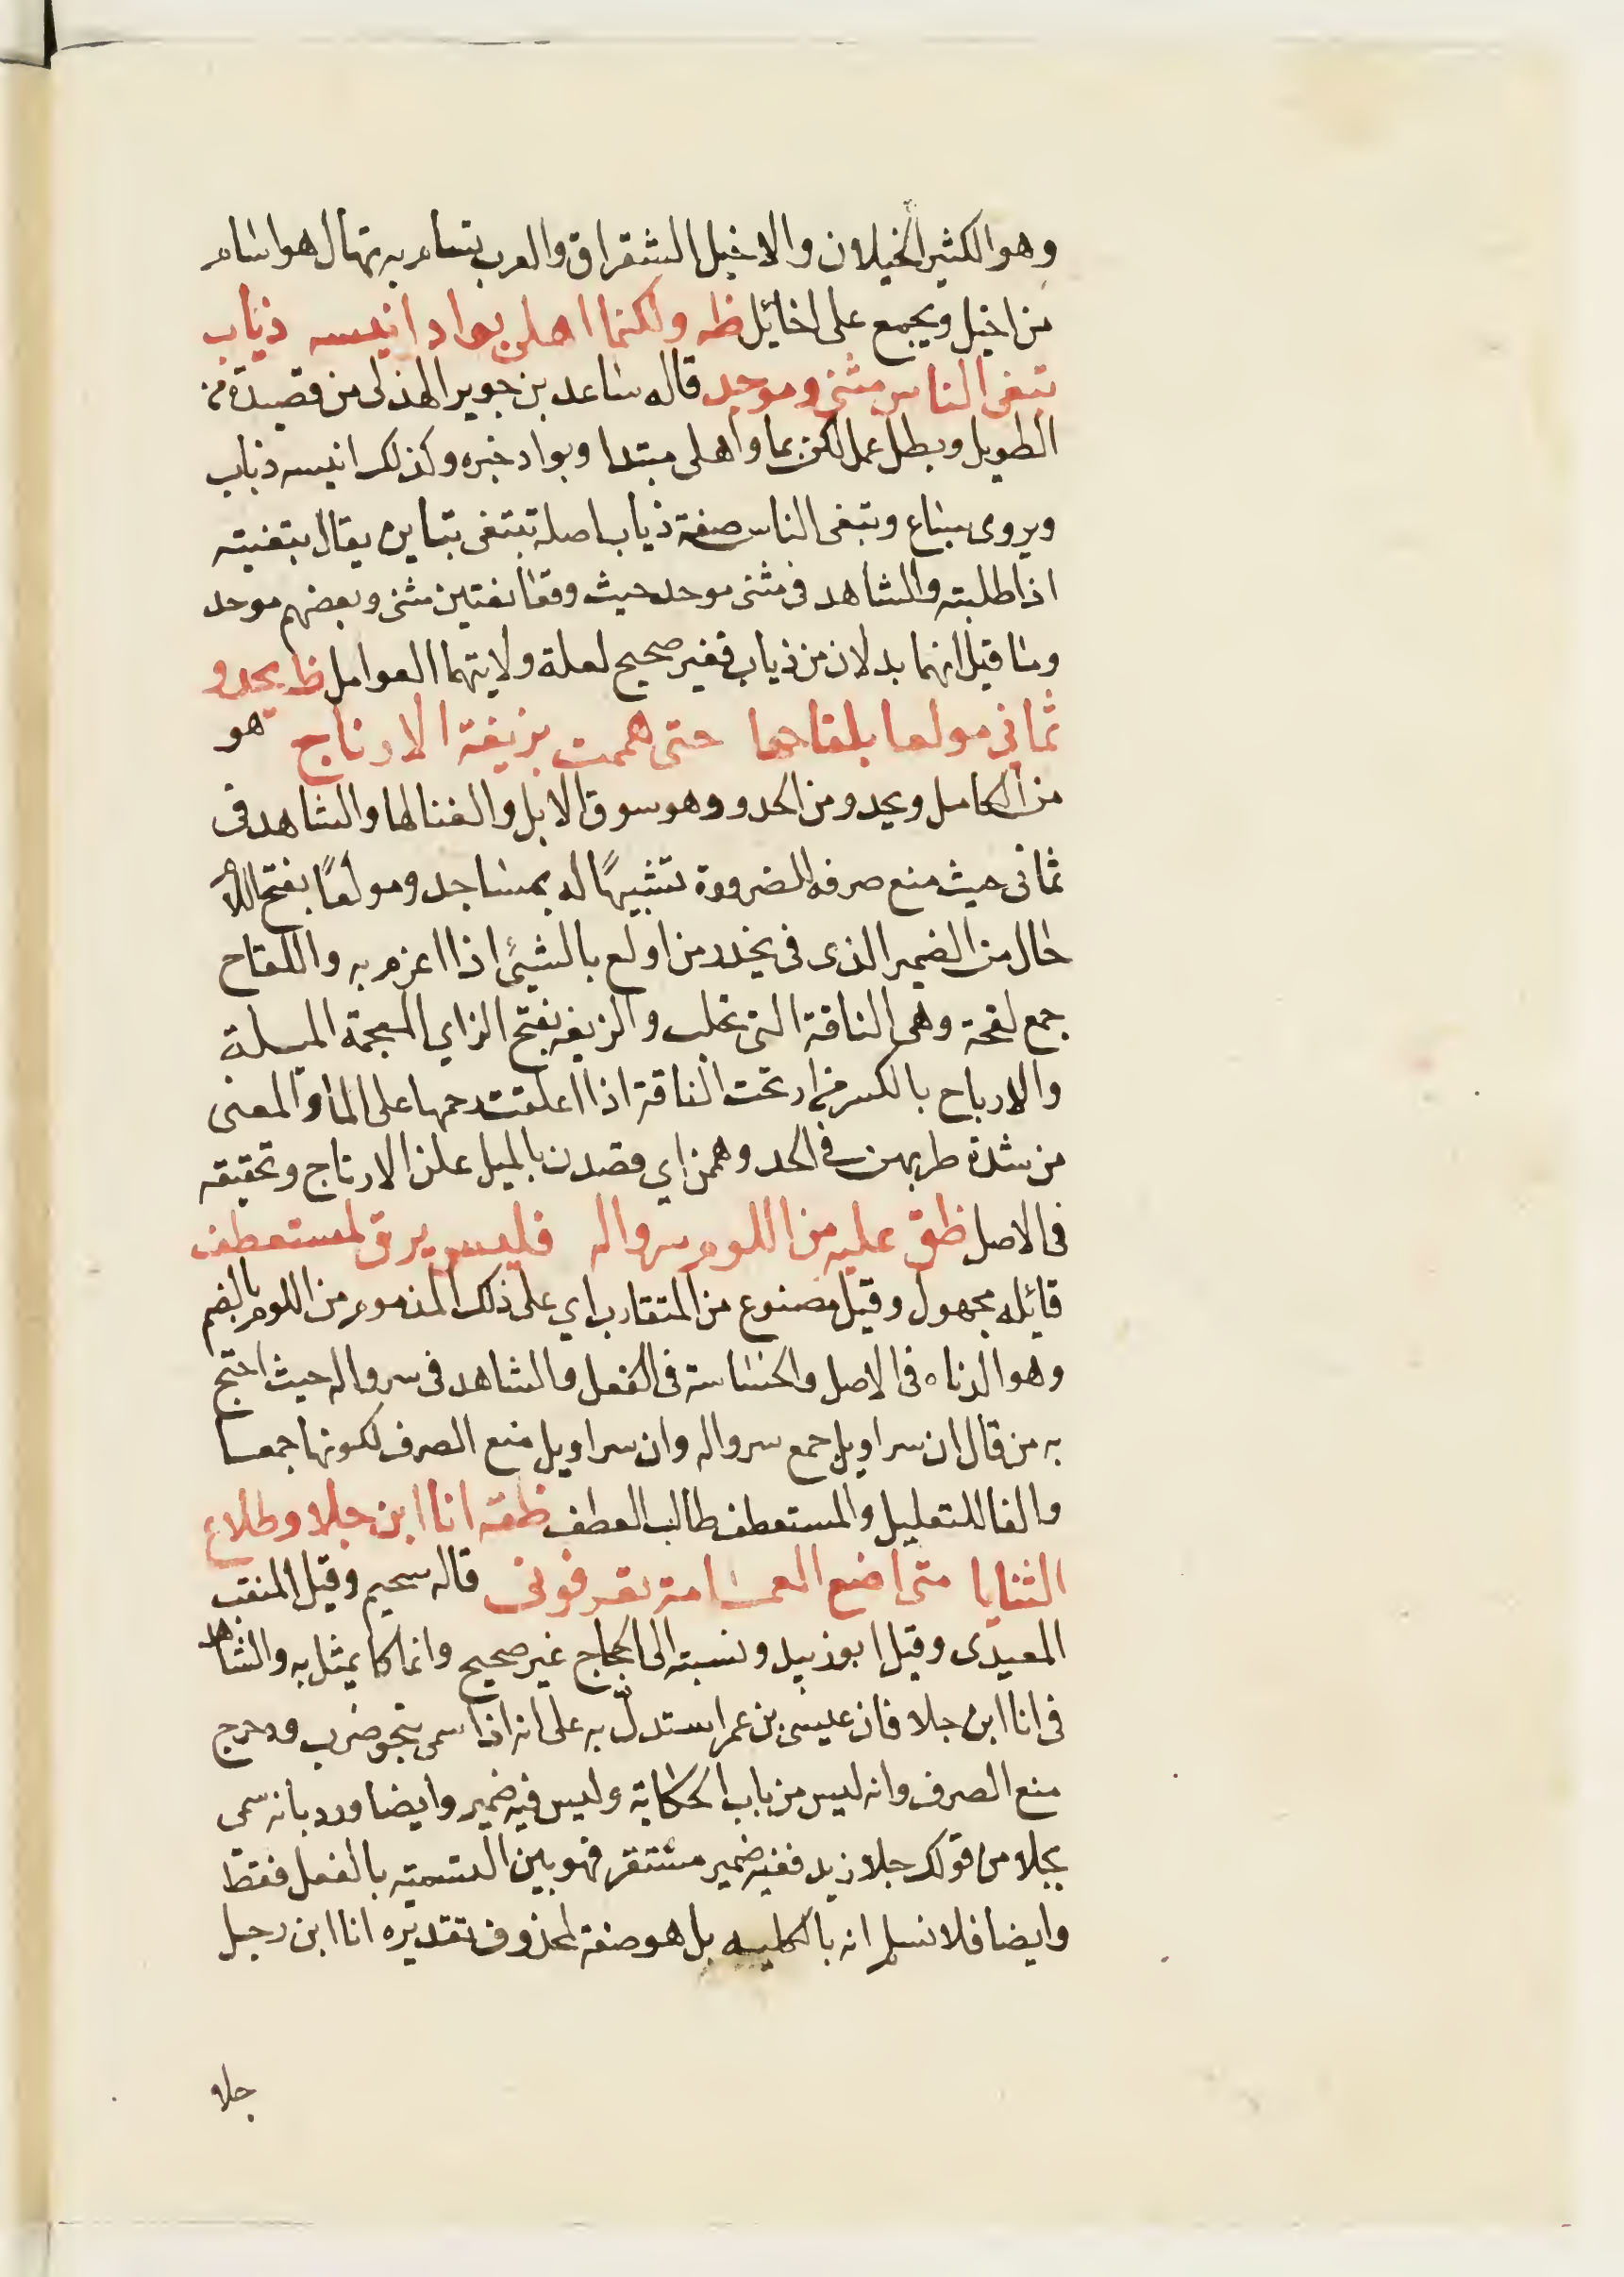 وهو الكثير الخيلان والاخيل الشقراق والعرب تتشام به تهال هو اشام
من اخيل ويجمع على اخائل ظه ولكنما اهلى بواد انيسه ذياب
تبغى الناس مثنى وموحد قاله ساعد بن جوير الهذلى من قصيدة من
الطويل وبطل عمل لكن بما واهلى مبتدا وبواد خبره وكذلك انيسه ذباب
ويروى سباع وتبغى الناس صفة ذياب اصله تبتغى بتاين يقال بتغيته
اذا طلبته والشاهد فى مثنى موحد حيث وقعا نعتين مثنى وبعضهم موحد
وما قيل انهما بدلان من ذياب فغير صحيح لعلة ولايتهما العوامل ظ يحدو
ثمانى مولعا بلقاحها حتى هممت بزيغة الارتاج هو
من الكامل ويحدو من الحدو وهو سوق الابل والغنا لها والشاهد فى
ثمانى حيث منع صرفه للضرورة تشبيهًا له بمساجد ومولعًا بفتح اللام
حال من الضمير الذى فى يخدد من اولع بالشيئ اذا اغرم به واللقاح
جمع لقحة وهى الناقة التى تحلب والزيغه بفتح الزاي المعجمة الميلة
والارباح بالكسر من ارتحت الناقة اذا اغلقت رحمها على الما والمعنى
من شدة طربهن فى الحدو هممن اي قصدن بالميل علن الارتاج وتحقيقه
فى الاصل ظق عليه من اللوم سرواله فليس يرق لمستعطف
قائله مجهول وقيل مصنوع من المتقارب اي على ذلك المذموم من اللوم بالضم
وهو الدناه فى الاصل والخساسة فى الفعل والشاهد فى سرواله حيث احتج
به من قال ان سراويل جمع سرواله وان سراويل منع الصرف لكونها جمعا
والفا للتعليل والمستعطف طالب العطف ظقه انا ابن جلا وطلاع
الثنايا متى اضع العمامة تعرفونى قاله سحيم وقيل المنقب
المعيدى وقيل ابوزبيد ونسبته الى الحجاج غير صحيح وانما كا يمثل به والشاهد
فى انا ابن جلا فان عيسى بن عمر استدلّ به على انه اذا سمى بنحو ضرب ودحرج
منع الصرف وانه ليس من باب الحكاية وليس فيه ضمير وايضا ورد بانه سمى
بجلا من قولك جلا زيد ففيه ضمير مستقر فهو بين التسمية بالفعل فقط
وايضا فلا نسلم انه بالكليه بل هو صفة لمحذوف تقديره انا ابن رجل
جلا